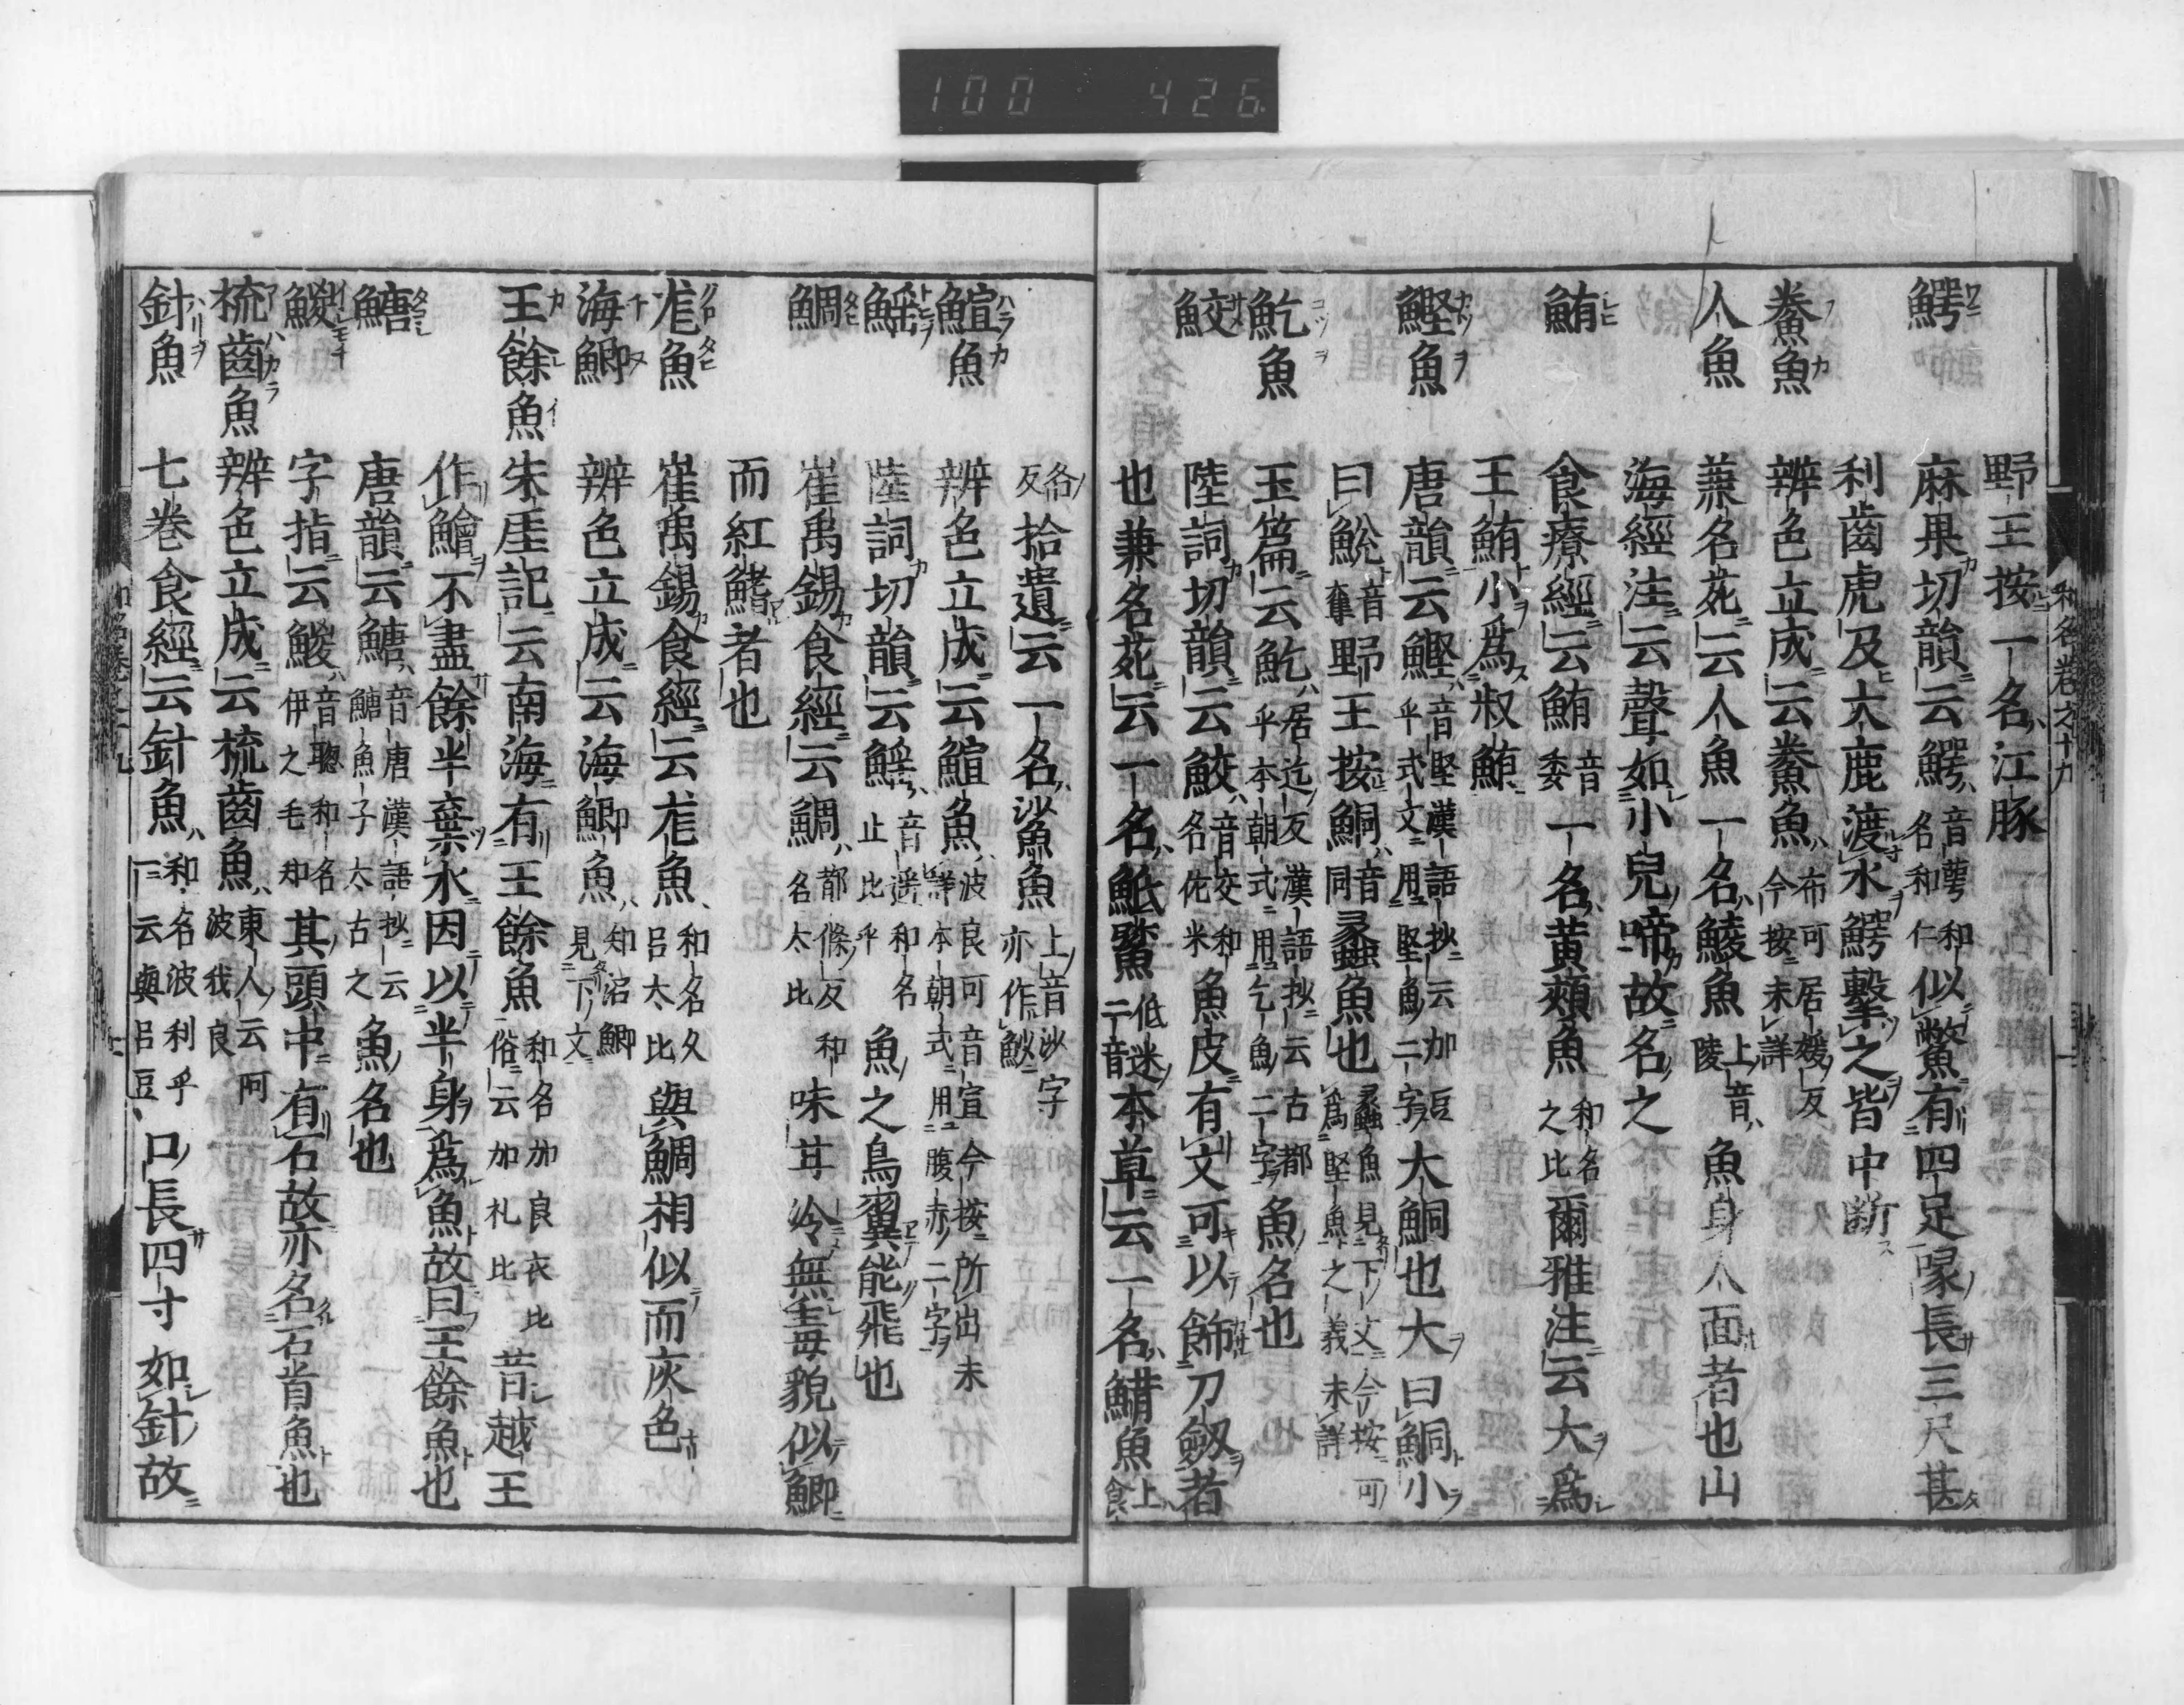 100 426
和名卷之十九
野王按一名江豚
鰐 麻果切韻云鰐 音萼和名和仁 似鱉有四足喙長三尺甚
利齒虎及大鹿渡水鰐擊之皆中斷
鮝魚 辨色立成云鮝魚 布可居媛反今按未詳
人魚 兼名苑云人魚一名鯪魚 上音陵 魚身人面者也山
海經注云聲如小兒啼故名之
鮪 食療經云鮪 音委 一名黄頰魚 和名之比 爾雅注云大爲
王鮪小爲叔鮪
鰹魚 唐韻云鰹 音堅漢語抄云加豆乎式文用堅魚二字 大鮦也大曰鮦小
曰鮵 音奪 野王按鮦 音同 蠡魚也 蠡魚見下文今按可爲堅魚之義未詳
魤魚 玉篇云魤 居迄反漢語抄云古都乎本朝式用乞魚二字 魚名也
鮫 陸詞切韻云鮫 音交和名佐米 魚皮有文可以飾刀劔者
也兼名苑云一名䱃 低迷二音 本草云一名鯌魚 上食
各反 拾遺云一名沙魚 上音沙字亦作魦
鰚魚 辨色立成云鰚魚 波良可音宣今按所出未詳本朝式用腹赤二字
鰩 陸詞切韻云鰩 音遥和名止比乎 魚之鳥翼能飛也
鯛 崔禹錫食經云鯛 都條反和名太比 味甘冷無毒貌似鯽
而紅鰭者也
尨魚 崔禹錫食經云尨魚 和名久呂太比 與鯛相似而灰色
海鯽 辨色立成云海鯽魚 知沼鯽見下文
王餘魚 朱厓記云南海有王餘魚 和名加良衣比俗云加礼比 昔越王
作鱠不盡餘半棄水因以半身爲魚故曰王餘魚也
鰖 唐韻云鰖 音唐漢語抄云鰖魚子太古之 魚名也
鯼 字指云鯼 音聰和名伊之毛知 其頭中有石故亦名石首魚也
梳齒魚 辨色立成云梳齒魚 東人云阿波波我良
針魚 七卷食經云針魚 和名波利乎一云與呂豆 口長四寸如針故